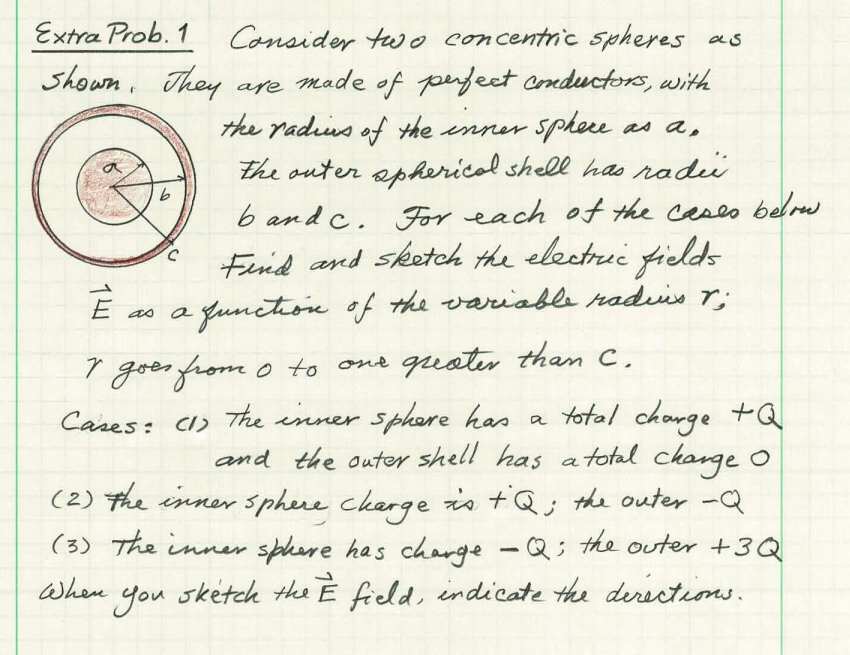 Extra Prob. 1 Consider two concentric spheres as
shown. They are made of perfect conductors, with
the radius of the inner sphere as a.
The outer spherical shell has radii
b and c. For each of the cases below
Find and sketch the electric fields
E⃗ as a function of the variable radius r;
r goes from 0 to one greater than C.
Cases: (1) The inner sphere has a total charge +Q
and the outer shell has a total charge 0
(2) The inner sphere charge is +Q; the outer -Q
(3) The inner sphere has charge -Q; the outer +3Q
When you sketch the E⃗ field, indicate the directions.
a
b
c